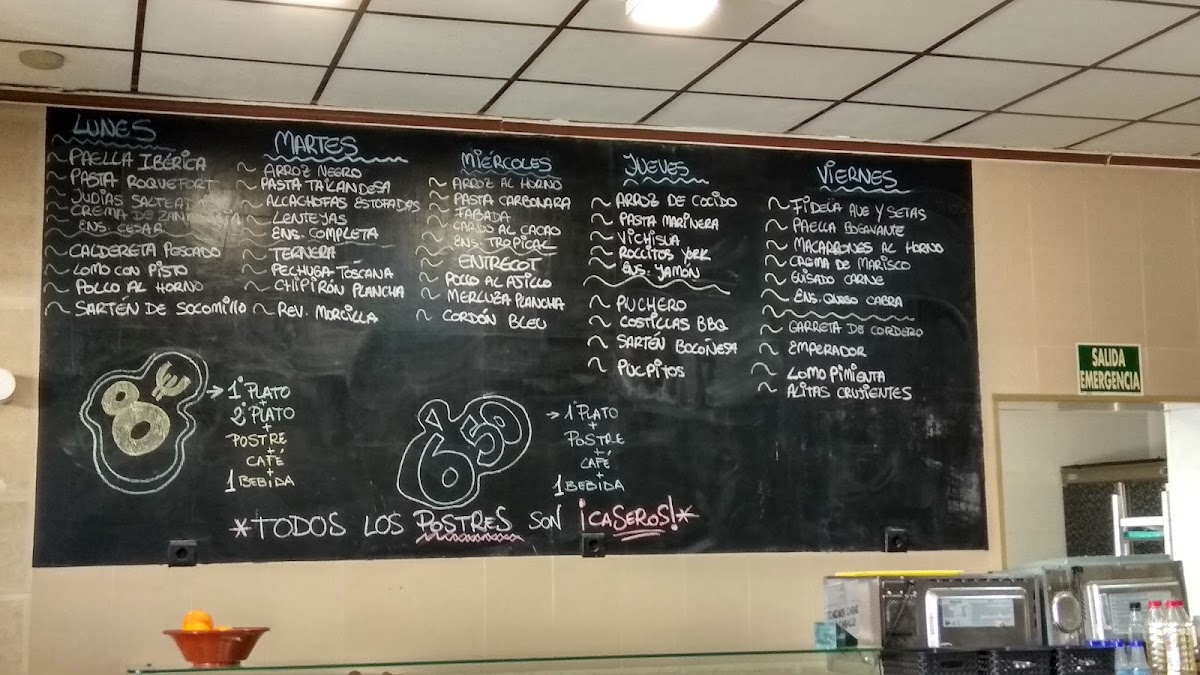 LUNES
~ PAELLA IBÉRICA
~ PASTA ROQUEFORT
~ JUDIAS
~ CREMA DE
ENS. CESAR
~ CALDERETA PESCADO
~ LOMO CON PISTO
~ POLLO AL HORNO
~ SARTÉN DE SOCOMILLO
MARTES
~ ARROZ NEGRO
~ PASTA TAILANDESA
~ ALCACHOFAS ESTOFADAS
~ LENTEJAS
~ ENS. COMPLETA
~ TERNERA
~ PECHUGA TOSCANA
~ CHIPIRÓN PLANCHA
~ REV. MORCILLA
MIÉRCOLES
~ ARROZ AL HORNO
~ PASTA CARBONARA
~ FABADA
~ AL CACAO
~ ENS. TROPICAL
~ ENTRECOT
~ POLLO AL AJILLO
~ MERLUZA PLANCHA
~ CORDÓN BLEU
JUEVES
~ ARROZ DE COCIDO
~ PASTA MARINERA
~ VICHISUA
~ ROLLITOS YORK
~ ENS. JAMÓN
~ PUCHERO
~ COSTILLAS BBQ
~ SARTÉN BOCOÑESA
~ PULPITOS
VIERNES
~ FIDEUA AVE Y SETAS
~ PAELLA BOGAVANTE
~ MACARRONES AL HORNO
~ CREMA DE MARISCO
~ GUISADO CARNE
~ ENS. QUESO CABRA
~ GARRETA DE CORDERO
~ EMPERADOR
~ LOMO PIMIENTA
~ ALITAS CRUJIENTES
8€
→ 1º PLATO
+
2º PLATO
+
POSTRE
+
CAFÉ
+
1 BEBIDA
6'50
→ 1º PLATO
+
POSTRE
+
CAFÉ
+
1 BEBIDA
*TODOS LOS POSTRES SON ¡CASEROS!*
SALIDA
EMERGENCIA